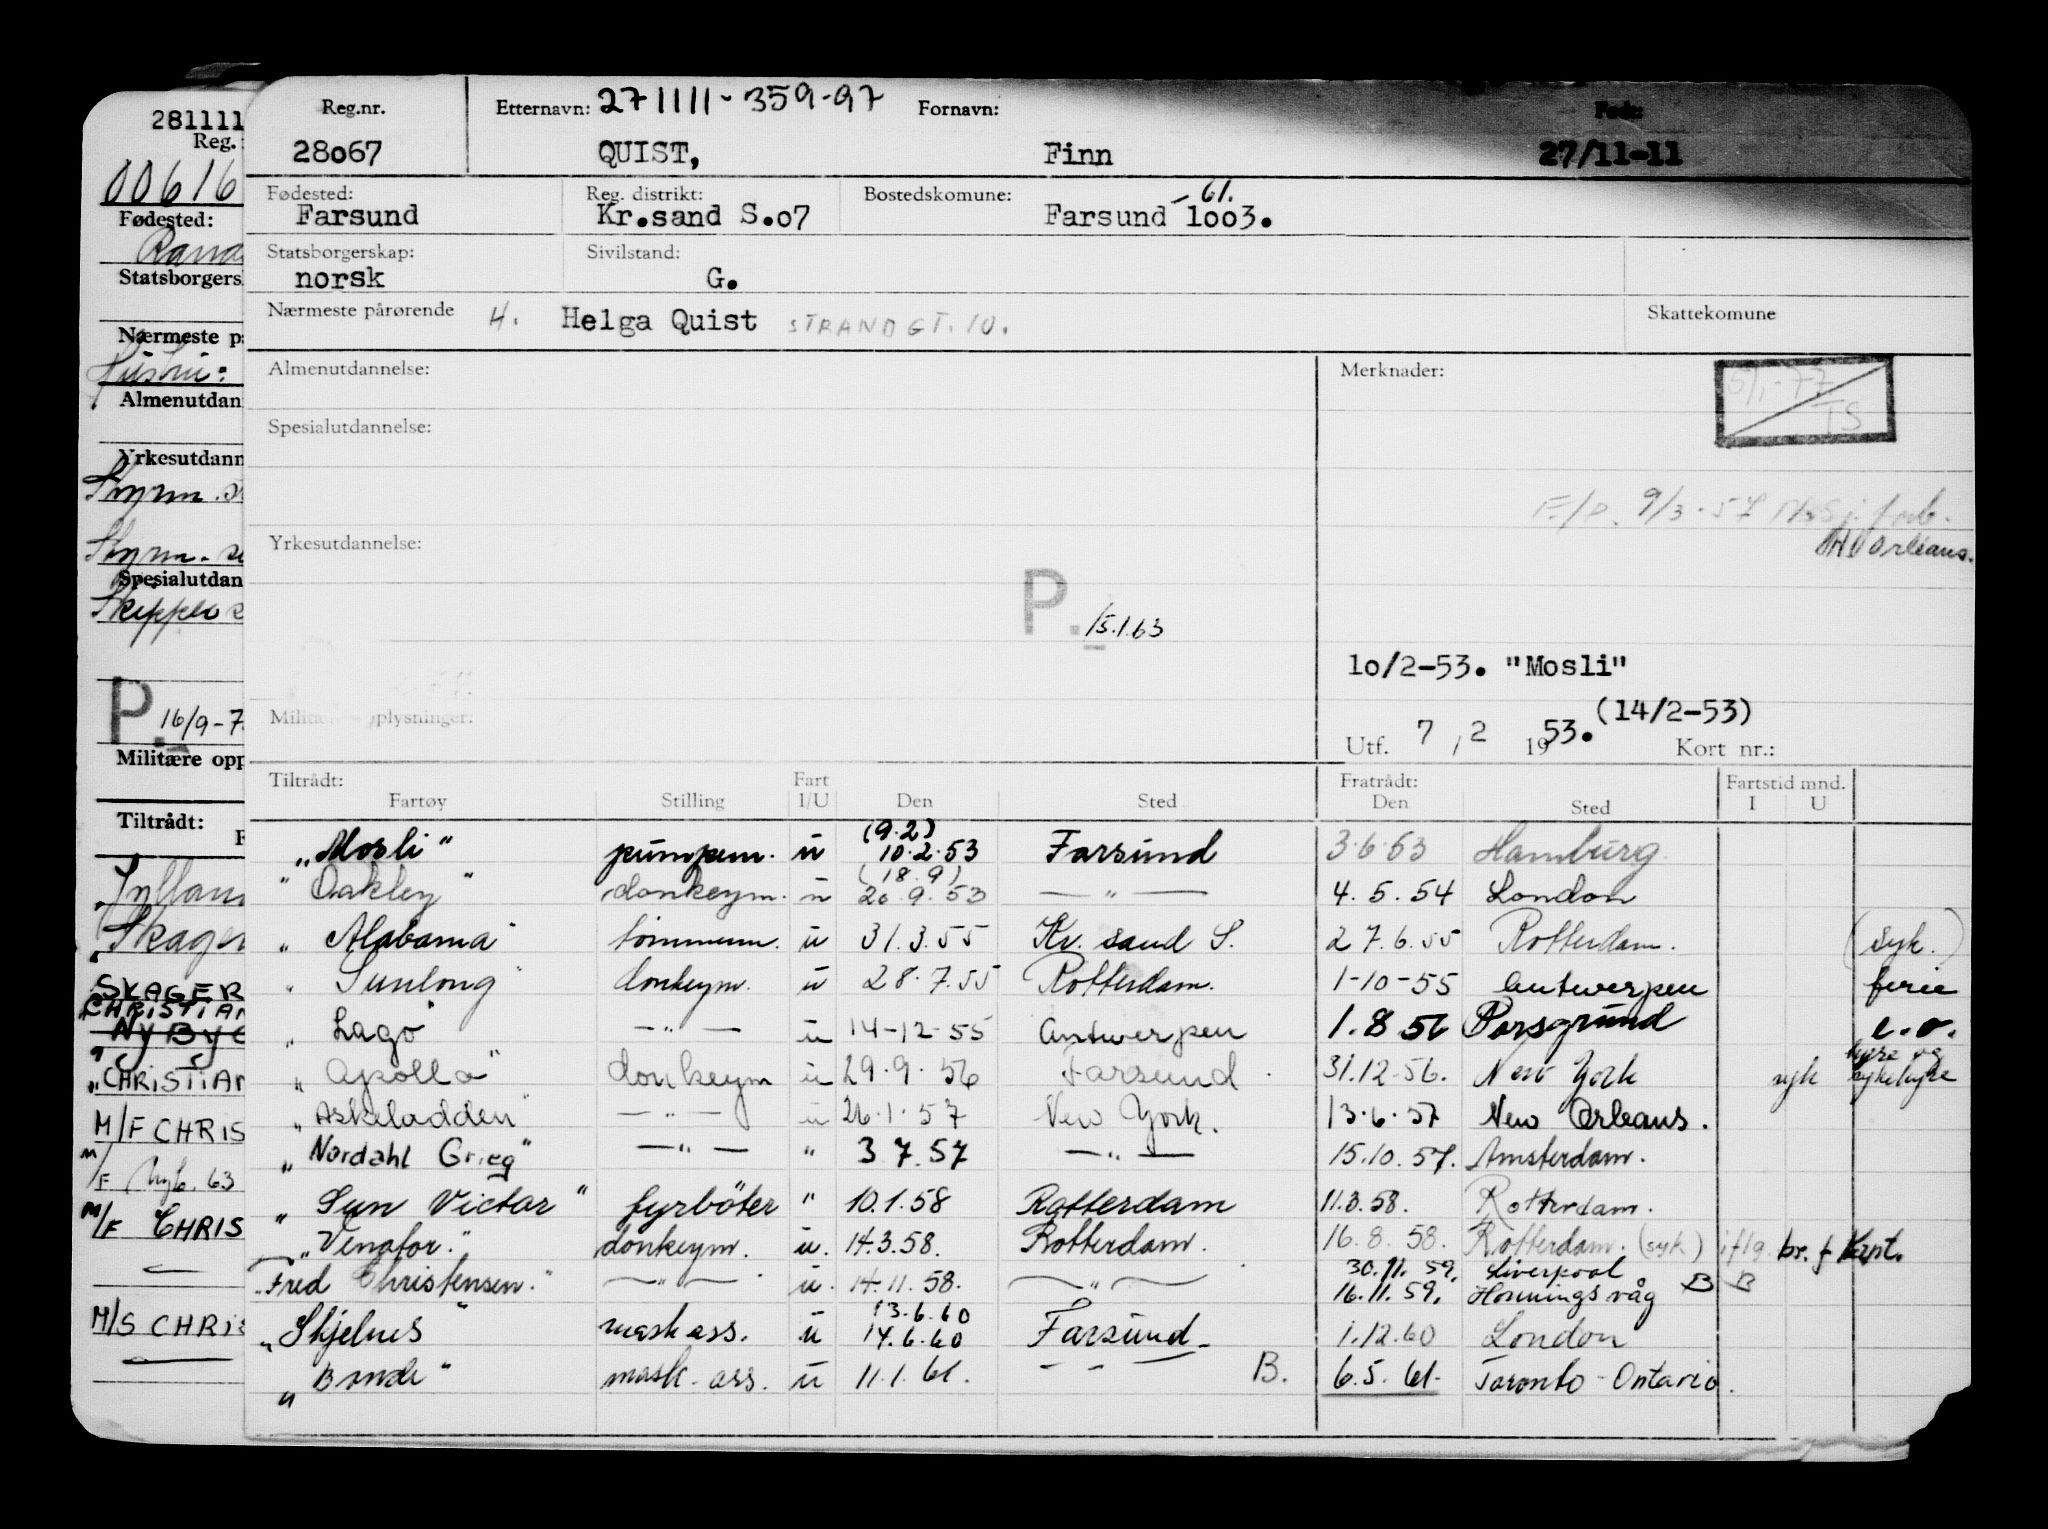 281111
Reg.
00616
Fødested:
Rana
Statsborgers
Nærmeste p
Hustru:
Almenutdan
Yrkesutdann
Styrm.
Styrm.
Spesialutdan
Skipper
P. 16/9-7
Militære opp
Tiltrådt:
F
Jyllan
Skager
SKAGER
CHRISTIAN
NyBye
"CHRISTIAN
M/F CHRIS
M/F Nyb. 63
M/F CHRIS
M/S CHRIS
Reg.nr. Etternavn: 271111-359-97 Fornavn: Født:
28067 QUIST, Finn 27/11-11
Fødested: Reg. distrikt: Bostedskomune: 61.
Farsund Kr.sand S.07 Farsund 1003.
Statsborgerskap: Sivilstand:
norsk G.
Nærmeste pårørende H. Helga Quist STRANDGT. 10. Skattekomune
Almenutdannelse: Merknader:
5/1-77
TS
Spesialutdannelse:
F/P. 9/3-57 forb.
Orleans.
Yrkesutdannelse:
P. 15.1.63
10/2-53. "Mosli"
(14/2-53)
Militære opplysninger: Utf. 7/2 1953. Kort nr.:
Tiltrådt: Fart Fratrådt: Fartstid mnd.
Fartøy Stilling I/U Den Sted Den Sted I U
(9.2)
"Mosli" pumpem. u 10.2.53 Farsund 3.6.53 Hamburg
(18.9)
"Oakley" donkeym. u 20.9.53 —"— 4.5.54 London
"Alabama" tömmerm. u 31.3.55 Kr. sand S. 27.6.55 Rotterdam. (syk.)
"Sunlong" donkeym. u 28.7.55 Rotterdam. 1-10-55 Antwerpen ferie
"Lago" —"— u 14-12-55 Antwerpen 1.8 56 Porsgrund e.o.
"Apollo" donkeym u 29.9.56 Farsund 31.12-56. New York syk hyre og sykehyre
"Askeladden" —"— u 26.1.57 New York. 13.6.57 New Orleans.
"Nordahl Grieg" —"— " 3 7.57 —"— 15.10.57. Amsterdam.
"Sun Victor" fyrböter " 10.1.58 Rotterdam 11.3.58. Rotterdam.
"Venator." donkeym. u. 14.3.58. Rotterdam. 16.8.58. Rotterdam. (syk) iflg. br. f Kapt.
30.11.59. Liverpool
"Fred Christensen." —"— u. 14.11.58. —"— 16.11.59. Honningsvåg B B
13.6.60
"Skjelnes" mask ass. u 14.6.60 Farsund 1.12.60 London
"Bonde" mask. ass. u 11.1.61. — — B. 6.5.61. Toronto - Ontario.